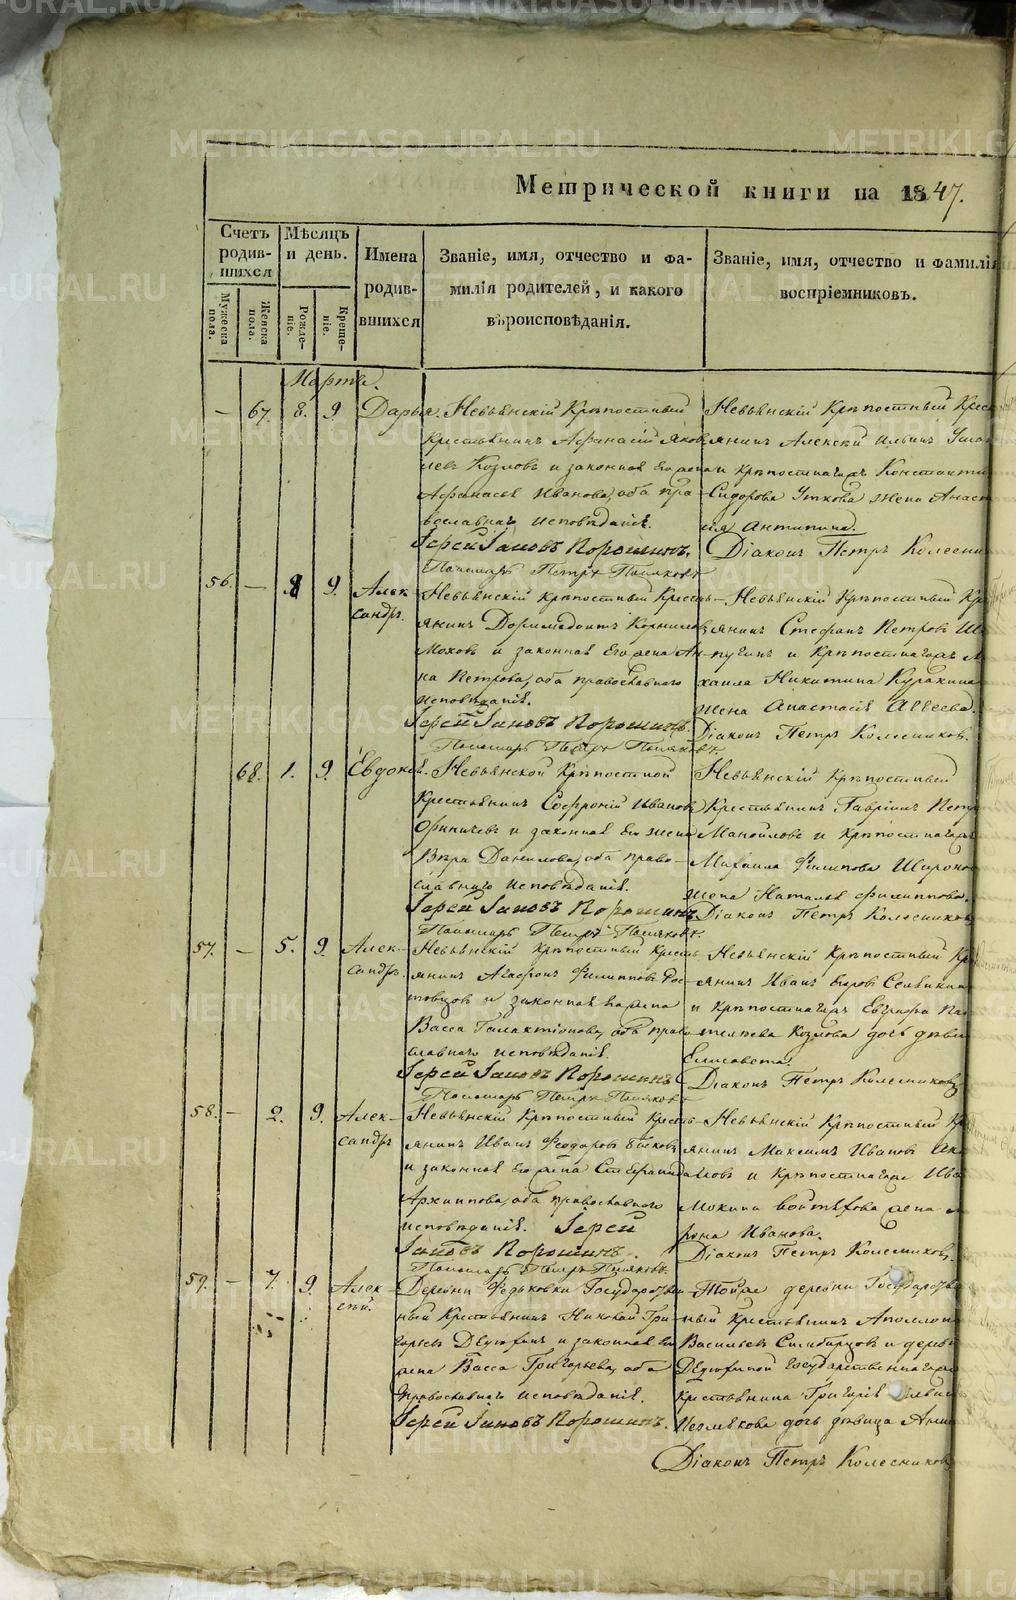 Метрической книги на 1847.
Счетъ родив-шихся
Мѣсяцъ и день.
Имена родив-вшихся
Званіе, имя, отчество и фа-
милія родителей, и какого
вѣроисповѣданія.
Званіе, имя, отчество и фамилія
воспріемниковъ.
Мужеска пола.
Женска пола.
Рожде-ніе.
Креще-ніе.
Марта.
— 67. 8. 9. Дарья. Невьянскій Крѣпостный
Крестьянинъ Афанасій Яков
левъ Козловъ и законная его жена
Афанасья Иванова, оба пра-
вославнаго исповѣданія.
Іерей Іаковъ Порошинъ.
Пономарь Петръ
Невьянскій Крѣпостный Крес
янинъ Алексѣй Ильинъ
и крѣпостнагоже Константи
Сидорова Уткова жена Анаст
сія Антипина.
Діаконъ Петръ Колесни
56. — 8 9. Алек-
сандръ.
Невьянскій крѣпостный Кресть-
янинъ Доримедонтъ Корниловъ
Моховъ и законная его жена Ан-
на Петрова, оба православнаго
исповѣданія.
Іерей Іаковъ Порошинъ.
Пономарь Петръ
Невьянскій Крѣпостный Кр
янинъ Стефанъ Петровъ Ши
пугинъ и Крѣпостнагоже М
хаила Никитина Куракина
жена Анастасія Авдеева.
Діаконъ Петръ Колесников.
68. 1. 9. Евдокія. Невьянской Крѣпостной
Крестьянинъ Софроній Ивановъ
и законная его жена
Вѣра Данилова, оба право-
славнаго исповѣданія.
Іерей Іаковъ Порошинъ
Пономарь Петръ
Невьянскій Крѣпостный
Крестьянинъ Гавріилъ Петр
Маноиловъ и Крѣпостнагоже
Михаила Филипова Широко
жена Наталья Филиппова.
Діаконъ Петръ Колесников
57. — 5. 9. Алек-
сандръ.
Невьянскій Крѣпостный Кресть
янинъ Агафонъ Филипповъ Рос-
товцовъ и законная его жена
Васса Галактіонова, оба право
славнаго исповѣданія.
Іерей Іаковъ Порошинъ
Пономарь Петръ
Невьянскій Крѣпостный Кр
янинъ Иванъ Егоровъ
и Крѣпостнагоже Евграфа Пан
телѣева Козлова дочь дѣви
Елисавета.
Діаконъ Петръ Колесников
58. — 2. 9. Алек-
сандръ
Невьянскій Крѣпостный Кресть-
янинъ Иванъ Феодоровъ Быковъ
и законная его жена Стефанида
Архиппова, оба православнаго
исповѣданія. Іерей
Іаковъ Порошинъ.
Пономарь Петръ
Невьянскій Крѣпостный Кр
янинъ Максимъ Ивановъ
и Крѣпостнагоже Ива
Мокина Войтѣхова жена М
рона Иванова.
Діаконъ Петръ Колесников.
59. — 7. 9. Алек-
сѣй.
Деревни Федьковки Государствен-
ный Крестьянинъ Николай Гри-
горьевъ и законная его
жена Васса Григорьева, оба
Православнаго исповѣданія.
Іерей Іаковъ Порошинъ.
Тойже деревни Государстве
ный Крестьянинъ Аполлон
Васильевъ и дерев
Государственнагоже
Крестьянина Григорія
дочь дѣвица Анн
Діаконъ Петръ Колесников
METRIKI.GASO-URAL.RU